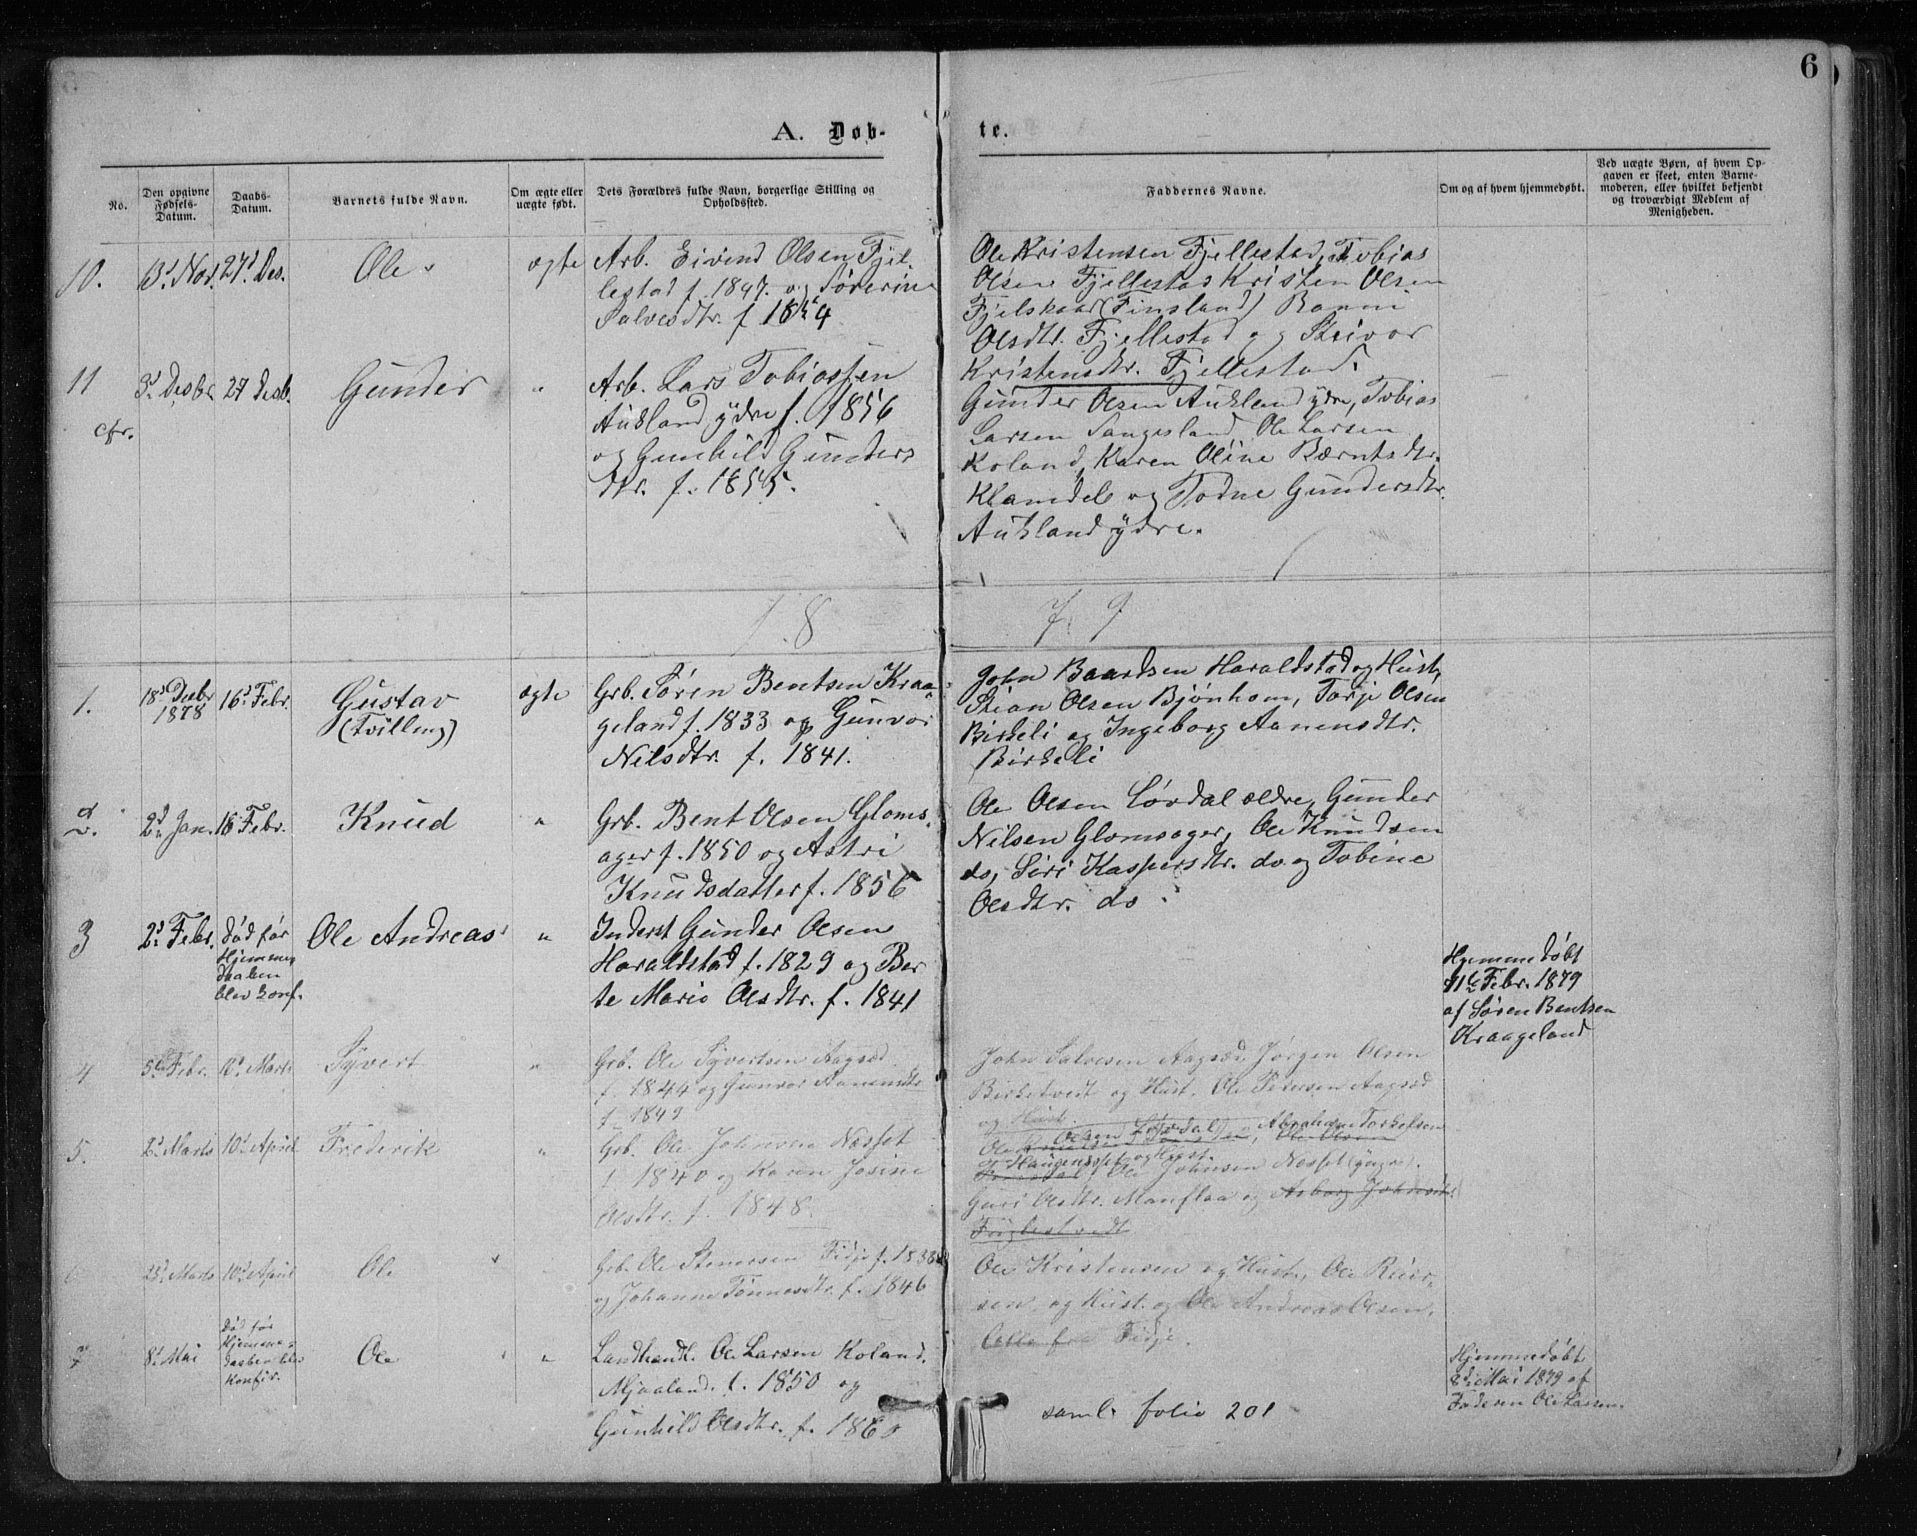 6
A. Døb-
te.
No.
Den opgivne Fødsels-Datum.
Daabs-Datum.
Barnets fulde Navn.
Om ægte eller uægte født.
Dets Forældres fulde Navn, borgerlige Stilling og Opholdsted.
Faddernes Navne.
Om og af hvem hjemmedøbt.
Ved uægte Børn, af hvem Op-
gaven er skeet, enten Barne-
moderen, eller hvilket bekjendt
og troværdigt Medlem af
Menigheden.
10. 13d Nov. 27d Des. Ole ægte
Arb. Eivend Olsen Fjel-
lestad f. 1847. og Sørerine
Salvesdtr. f.
Ole Kristensen Fjellestad, Tobias
Olsen Fjellestad Kristen Olsen
Fjelskaar (Finsland) Ronni
Olsdtr. Fjellestad og Skivor
Kristensdtr. Fjellestad.
11 3d Desbr. 27 Desb. Gunder "
cfr.
Arb. Lars Tobiassen
Aukland ydre f. 1856
og Gunhild Gunders
dtr. f. 1855.
Gunder Olsen Aukland ydre, Tobias
Larsen Sangesland, Ole Larsen
Koland, Karen Oline Bærntsdtr.
Klamdele og Todne Gundersdtr.
Aukland ydre.
1.8
7 9
1. 18d Desbr 1878 16d Febr. Gustav
(Tvilling) ægte
Grb. Søren Bentsen Kraa-
geland f. 1833 og Gunvor
Nilsdtr. f. 1841.
John Baardsen Haraldstad og Hust,
Stian Olsen Bjønhom, Torje Olsen
Birkeli og Ingeborg Aanensdtr.
Birkeli
2. 2d Jan. 16 Febr. Knud "
Grb. Bent Olsen Gloms-
ager f. 1850 og Astri
Knudsdatter f. 1856
Ole Olsen Løvdal ældre, Gunder
Nilsen Glomsager, Ole Knudsen
do, Siri Kaspersdtr. do. og Tobine
Olsdtr. do.
3 2d Febr. Død før
Hjemme
daaben
blev konf.
Ole Andreas "
Inderst Gunder Olsen
Haraldstad f. 1829 og Ber
te Marie Olsdtr. f. 1841
Hjemmedøbt
11te Febr. 1879
af Søren Bentsen
Kraageland
4 5te Febr. 10d Marts Syvert "
Grb. Ole Syvertsen Aagsæd
f. 1844 og Gunvor Aanensdtr
f. 1849
John Salvesen Aagsæd, Jørgen Olsen
Birketvedt og Hust, Ole Petersen Aagsæd
og Hust.
5. 2d Marts 10d April Frederik "
Grb. Ole Johnsen Nesset
f. 1840 og Karen Josine
Olsdtr. f. 1848.
Ole Olsen Løvdal, Abraham Torkelsen
Haugenesset og Hust. Ole Johnsen Nesset (yngre).
Guri Olsdtr. Manflaa og Asborg Johnsdtr
Fuglestvedt
6 23d Marts 10d April Ole
Grb. Ole Stenersen Fidje f. 1838
og Johanne Tønnesdtr. f. 1846
Ole Kristensen og Hust, Ole Reier-
sen og Hust. og Ole Andreas Olsen,
Alle fra Fidje.
7 8d Mai Død før
Hjemme-
daaben blev
konfir.
Ole "
Landhandl. Ole Larsen Koland,
Mjaaland. f. 1850 og
Gunhild Olsdtr. f. 1860
Hjemmedøbt
8d Mai 1879 af
Faderen Ole Larsen.
saml. folio 201